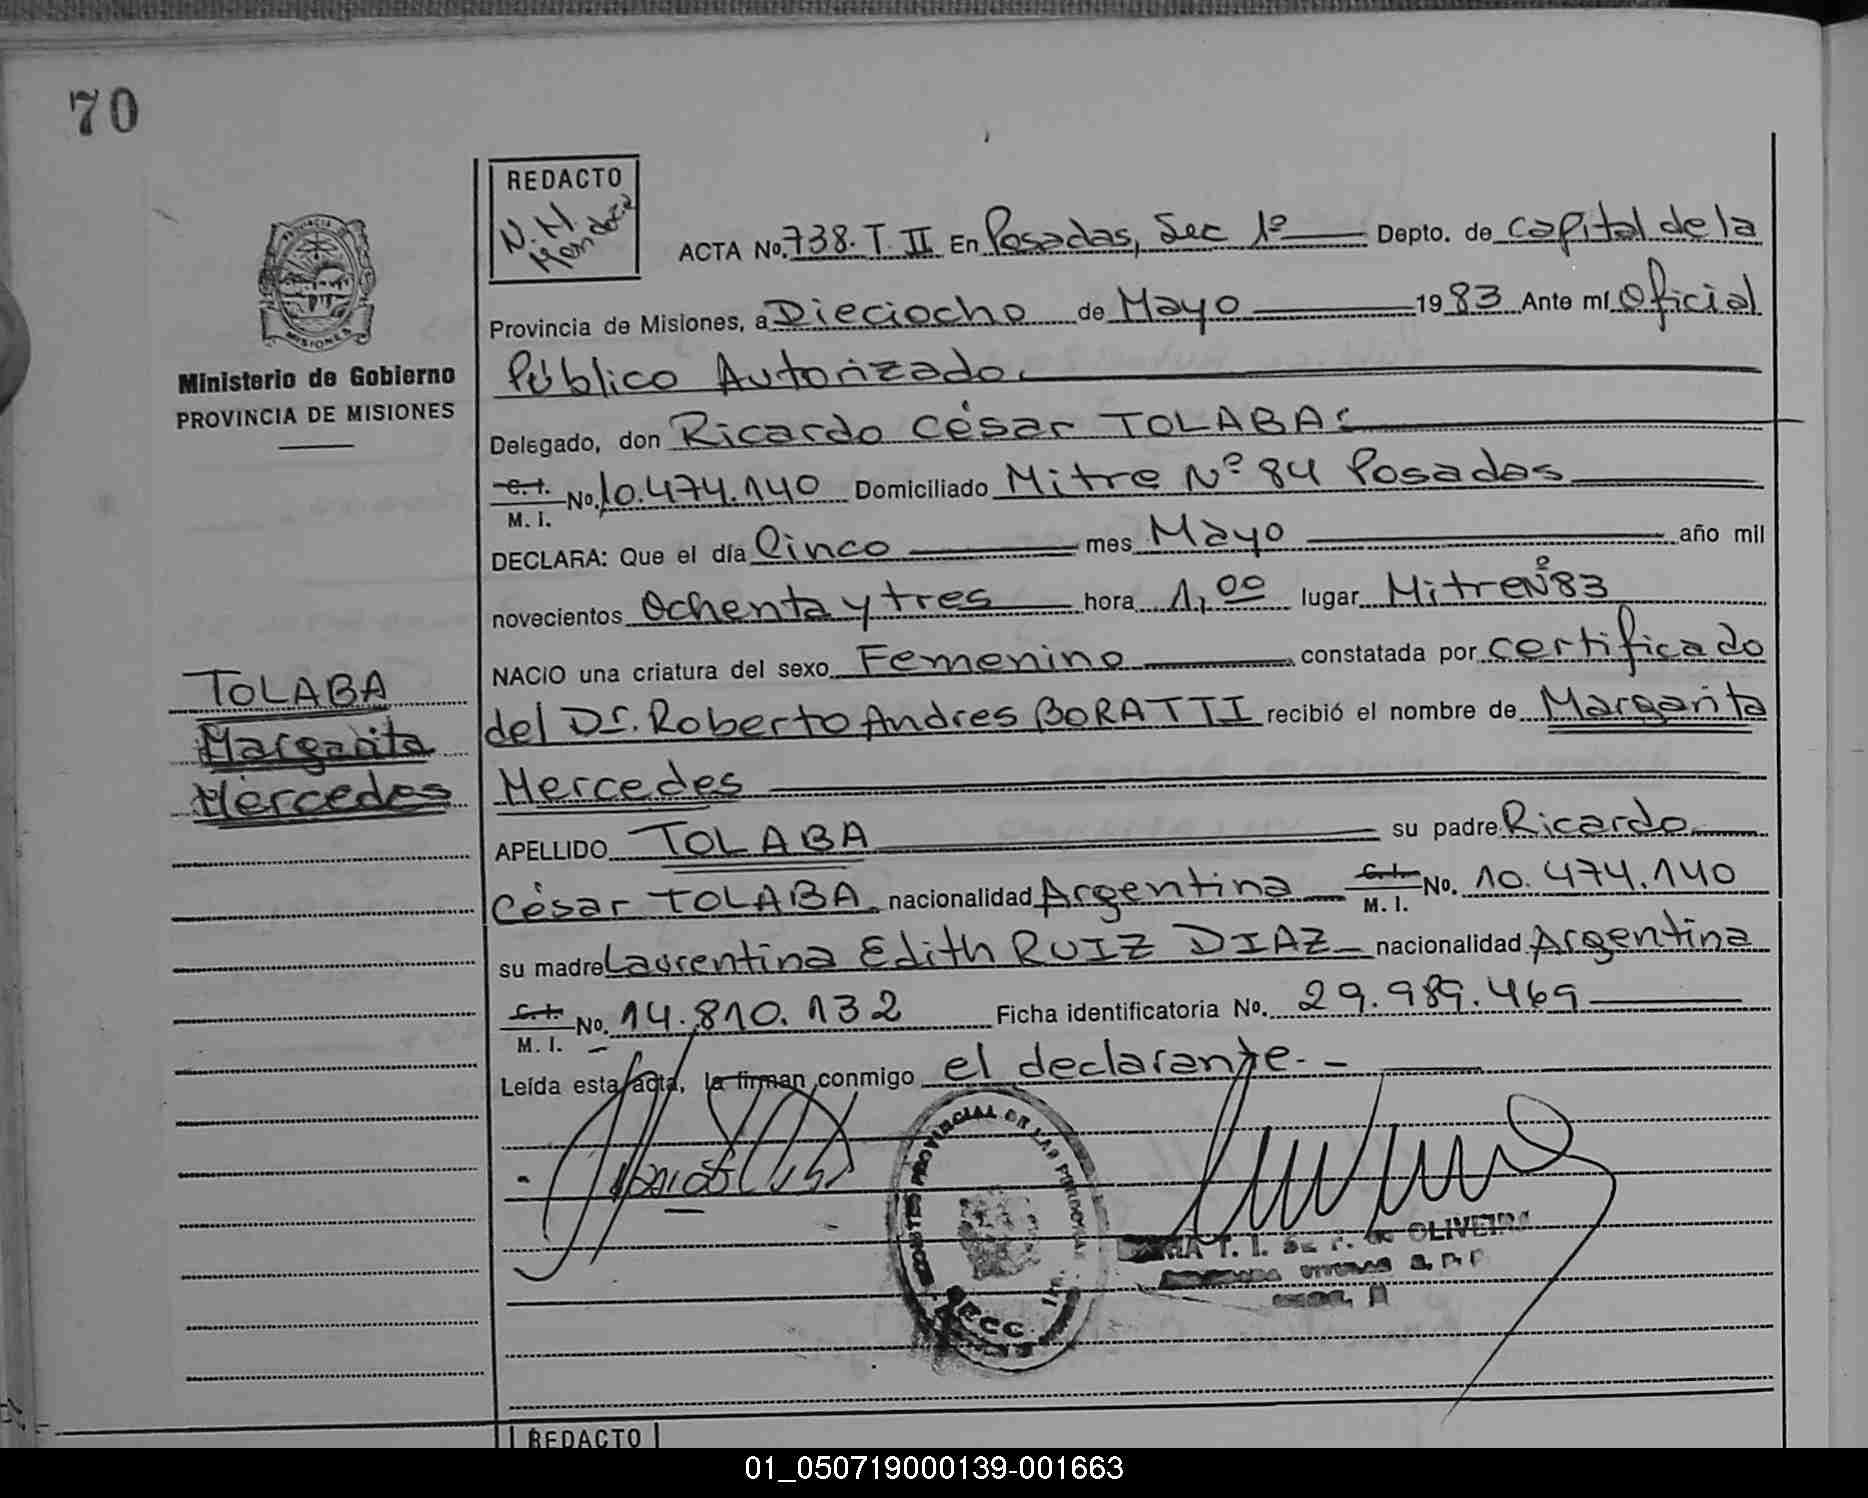 70
REDACTO
N. H.
Mendoza
ACTA No. 738. T. II En Posadas, Sec 1º Depto. de Capital de la
Provincia de Misiones, a Dieciocho de Mayo 1983 Ante mí Oficial
Público Autorizado.
Delegado, don Ricardo César TOLABA:
C. I. M. I. No. 10.474.140 Domiciliado Mitre Nº 84 Posadas
DECLARA: Que el día Cinco mes Mayo año mil
novecientos Ochenta y tres hora 1,00 lugar Mitre Nº 83
NACIO una criatura del sexo Femenino constatada por certificado
del Dr. Roberto Andres BORATTI recibió el nombre de Margarita
Mercedes
APELLIDO TOLABA su padre Ricardo
César TOLABA nacionalidad Argentina C. I. M. I. No. 10.474.140
su madre Laurentina Edith RUIZ DIAZ nacionalidad Argentina
C. I. M. I. No. 14.810.132 Ficha identificatoria No. 29.989.469
Leída esta acta, la firman conmigo el declarante.-
PROVINCIA DE
MISIONES
Ministerio de Gobierno
PROVINCIA DE MISIONES
TOLABA
Margarita
Mercedes
PROVINCIAL DE LAS PERSONAS
SECC.
OLIVEIRA
REDACTO
01_050719000139-001663